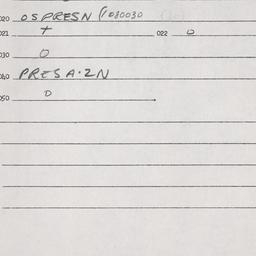 020 OSPRESN (1080030
021 + 022 0
030 0
040 PRESA.2N
050 0